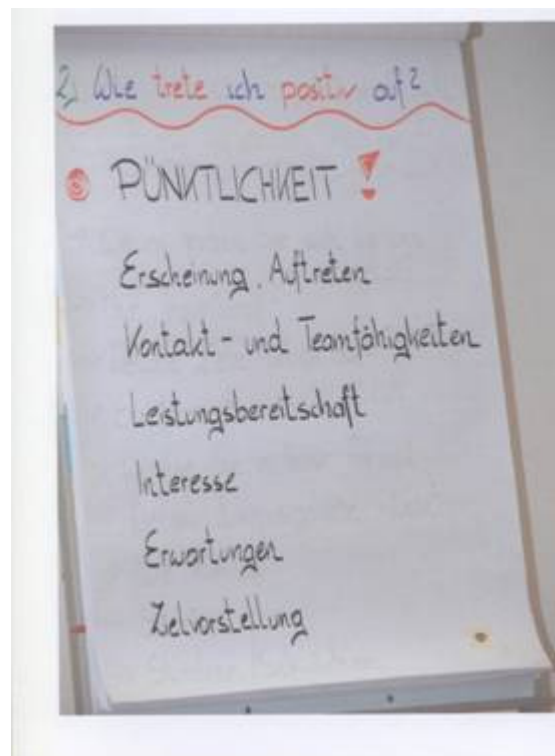 2) Wie trete ich positiv auf?
PÜNKTLICHKEIT !
Erscheinung, Auftreten
Kontakt- und Teamfähigkeiten
Leistungsbereitschaft
Interesse
Erwartungen
Zielvorstellung